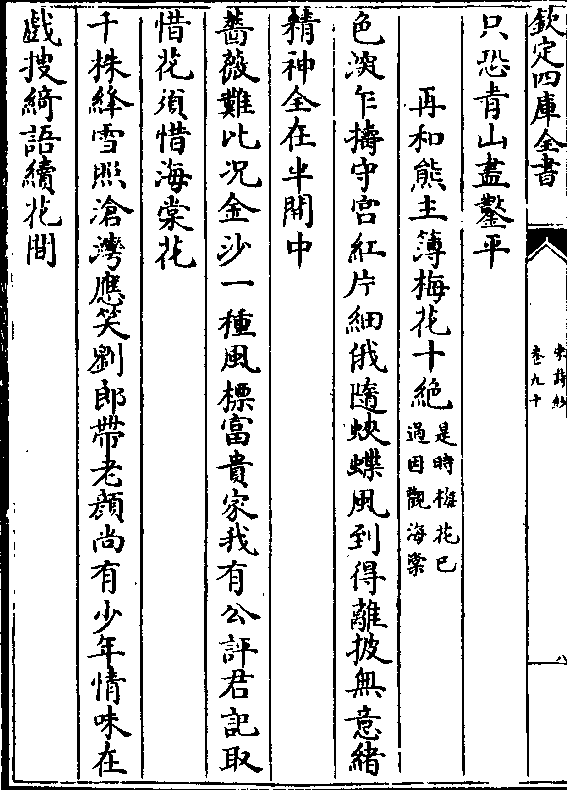 欽定四庫全書
宋詩鈔
卷九十
八
只恐青山盡鑿平
再和熊主簿梅花十絶
是時梅花已
過因觀海棠
色深乍搗守宫紅片細俄隨蛺蝶風到得離披無意緒
精神全在半開中
薔薇難比况金沙一種風標富貴家我有公評君記取
惜花須惜海棠花
千株絳雪照滄灣應笑劉郎帶老顔尚有少年情味在
戲搜綺語續花間